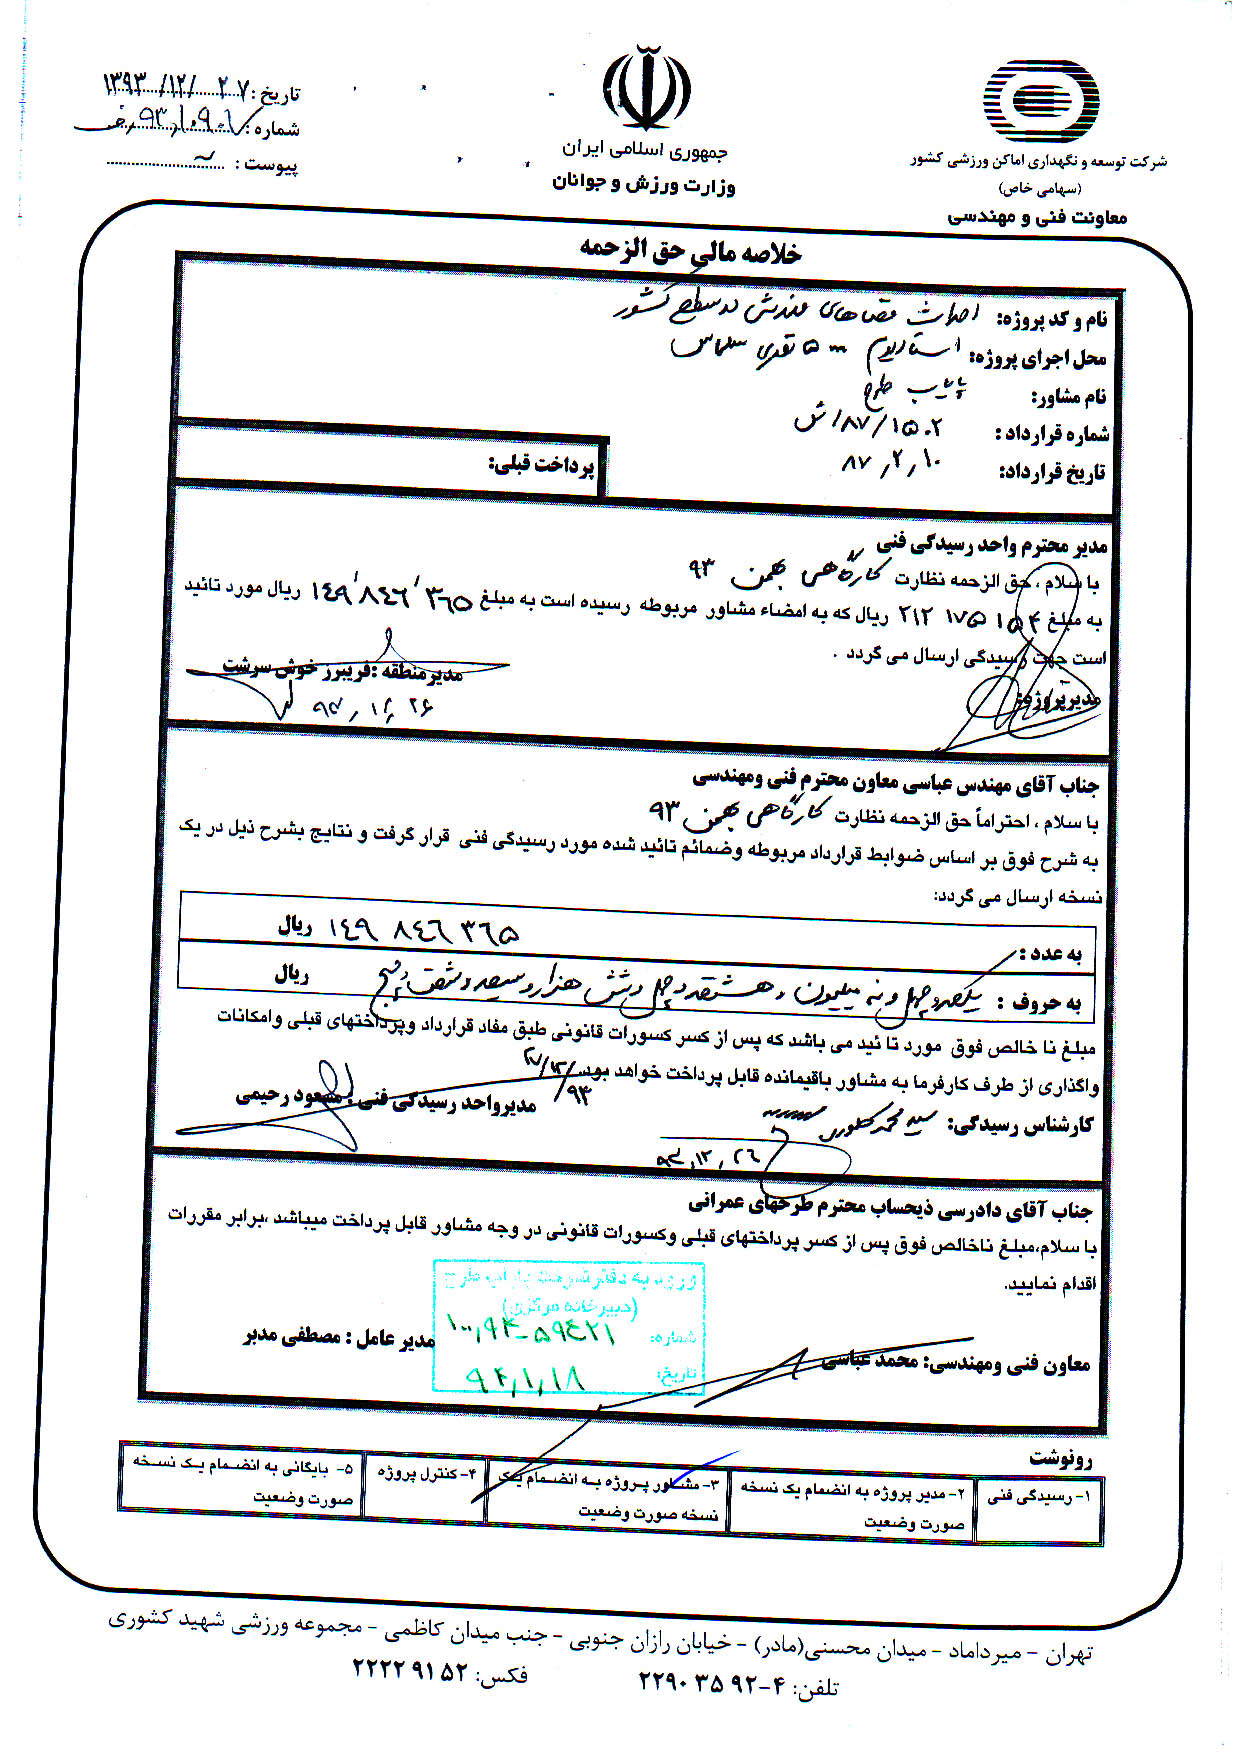 شرکت توسعه و نگهداری اماکن ورزشی کشور
(سهامی خاص)
معاونت فنی و مهندسی
جمهوری اسلامی ایران
وزارت ورزش و جوانان
تاریخ: ۱۳۹۳/۱۲/۲۷
شماره:
پیوست:
خلاصه مالی حق الزحمه
نام و کد پروژه: احداث فضاهای ورزشی در سطح کشور
محل اجرای پروژه: استادیوم ۵۰۰۰ نفری سلماس
نام مشاور: پایاب طرح
شماره قرارداد: ۸۷/۱۵۰۲/ش
تاریخ قرارداد: ۸۷٫۲٫۱۰
پرداخت قبلی:
مدیر محترم واحد رسیدگی فنی
با سلام ، حق الزحمه نظارت کارگاهی بهمن ۹۳
به مبلغ ۲۱۲ ۱۷۵ ۱۵۴ ریال که به امضاء مشاور مربوطه رسیده است به مبلغ ۱۴۹٬۸۴۶٬۳۶۵ ریال مورد تائید
است جهت رسیدگی ارسال می گردد .
مدیرپروژه:
مدیرمنطقه :فریبرز خوش سرشت
جناب آقای مهندس عباسی معاون محترم فنی ومهندسی
با سلام ، احتراماً حق الزحمه نظارت کارگاهی بهمن ۹۳
به شرح فوق بر اساس ضوابط قرارداد مربوطه وضمائم تائید شده مورد رسیدگی فنی قرار گرفت و نتایج بشرح ذیل در یک
نسخه ارسال می گردد:
به عدد : ۱۴۹ ۸۴۶ ۳۶۵ ریال
به حروف : یکصد و چهل و نه میلیون و هشتصد و چهل و شش هزار و سیصد و شصت و پنج ریال
مبلغ نا خالص فوق مورد تا ئید می باشد که پس از کسر کسورات قانونی طبق مفاد قرارداد وپرداختهای قبلی وامکانات
واگذاری از طرف کارفرما به مشاور باقیمانده قابل پرداخت خواهد بود.
کارشناس رسیدگی: سید محمد
مدیرواحد رسیدگی فنی : مسعود رحیمی
۹۳/۱۲/۲۷
۹۳٫۱۲٫۲۶
جناب آقای دادرسی ذیحساب محترم طرحهای عمرانی
با سلام،مبلغ ناخالص فوق پس از کسر پرداختهای قبلی وکسورات قانونی در وجه مشاور قابل پرداخت میباشد ،برابر مقررات
اقدام نمایید.
ورود به دفتر شرکت پایاب طرح
(دبیرخانه مرکزی)
شماره: ۱۰۰٫۹۴-۵۹۴۲۱
تاریخ: ۹۴٫۱٫۱۸
معاون فنی ومهندسی: محمد عباسی
مدیر عامل : مصطفی مدبر
رونوشت
۱- رسیدگی فنی
۲- مدیر پروژه به انضمام یک نسخه
صورت وضعیت
۳- مشاور پروژه به انضمام یک
نسخه صورت وضعیت
۴- کنترل پروژه
۵- بایگانی به انضمام یک نسخه
صورت وضعیت
تهران - میرداماد - میدان محسنی(مادر) - خیابان رازان جنوبی - جنب میدان کاظمی - مجموعه ورزشی شهید کشوری
تلفن: ۴-۲۲۹۰۳۵۹۲ فکس: ۲۲۲۲۹۱۵۲